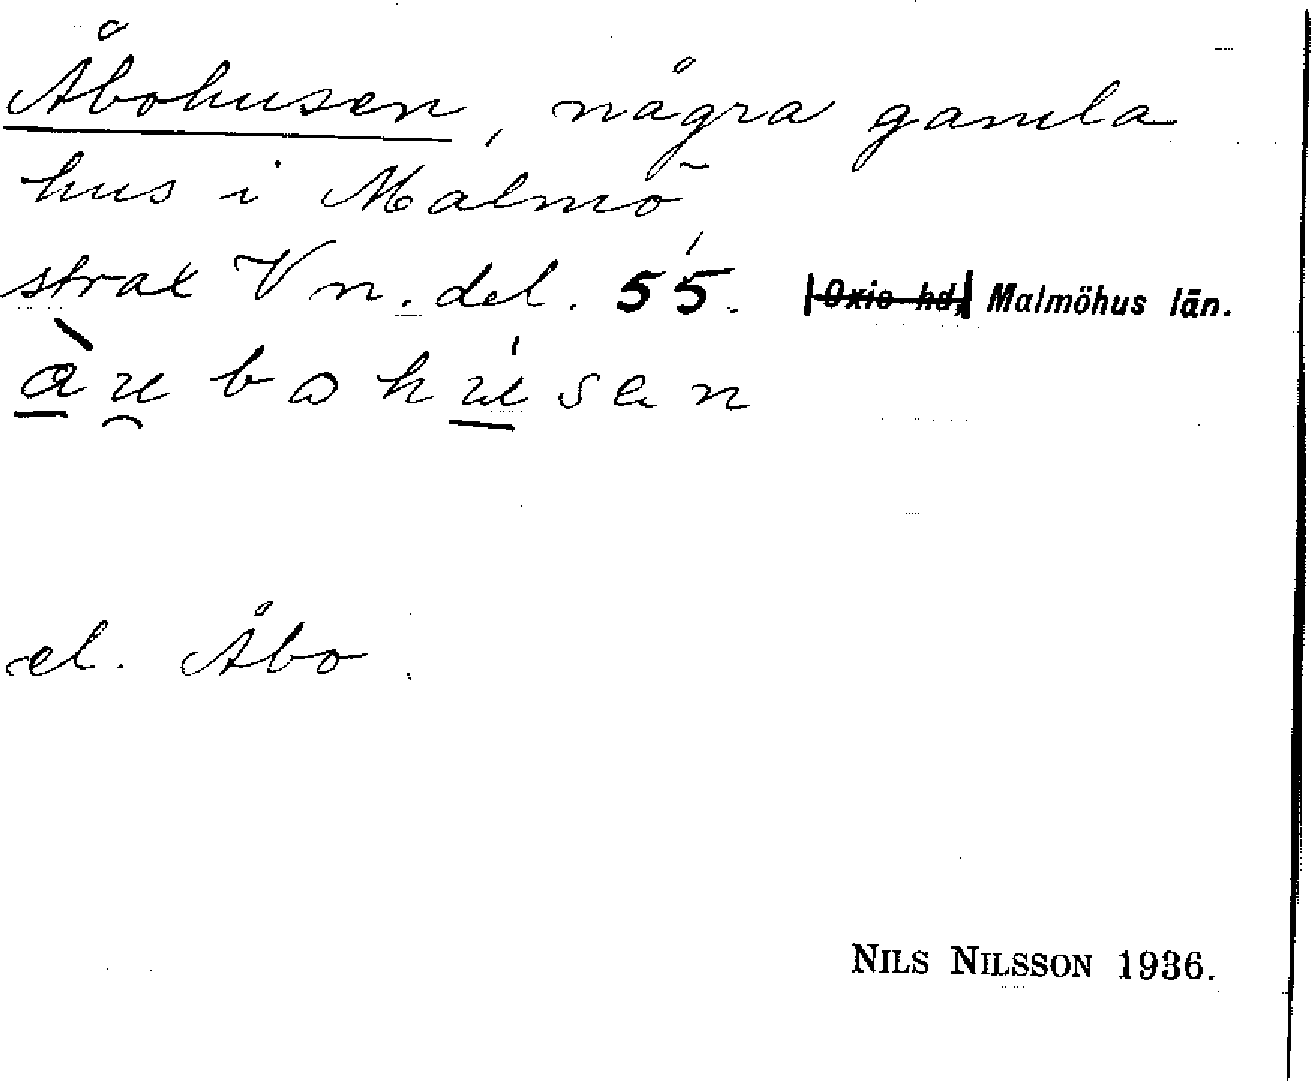 Åbohusen, några gamla
hus i Malmö
strax V n. del. 55. Oxie hd, Malmöhus län.
àu bohúsen
el. Åbo.
NILS NILSSON 1936.